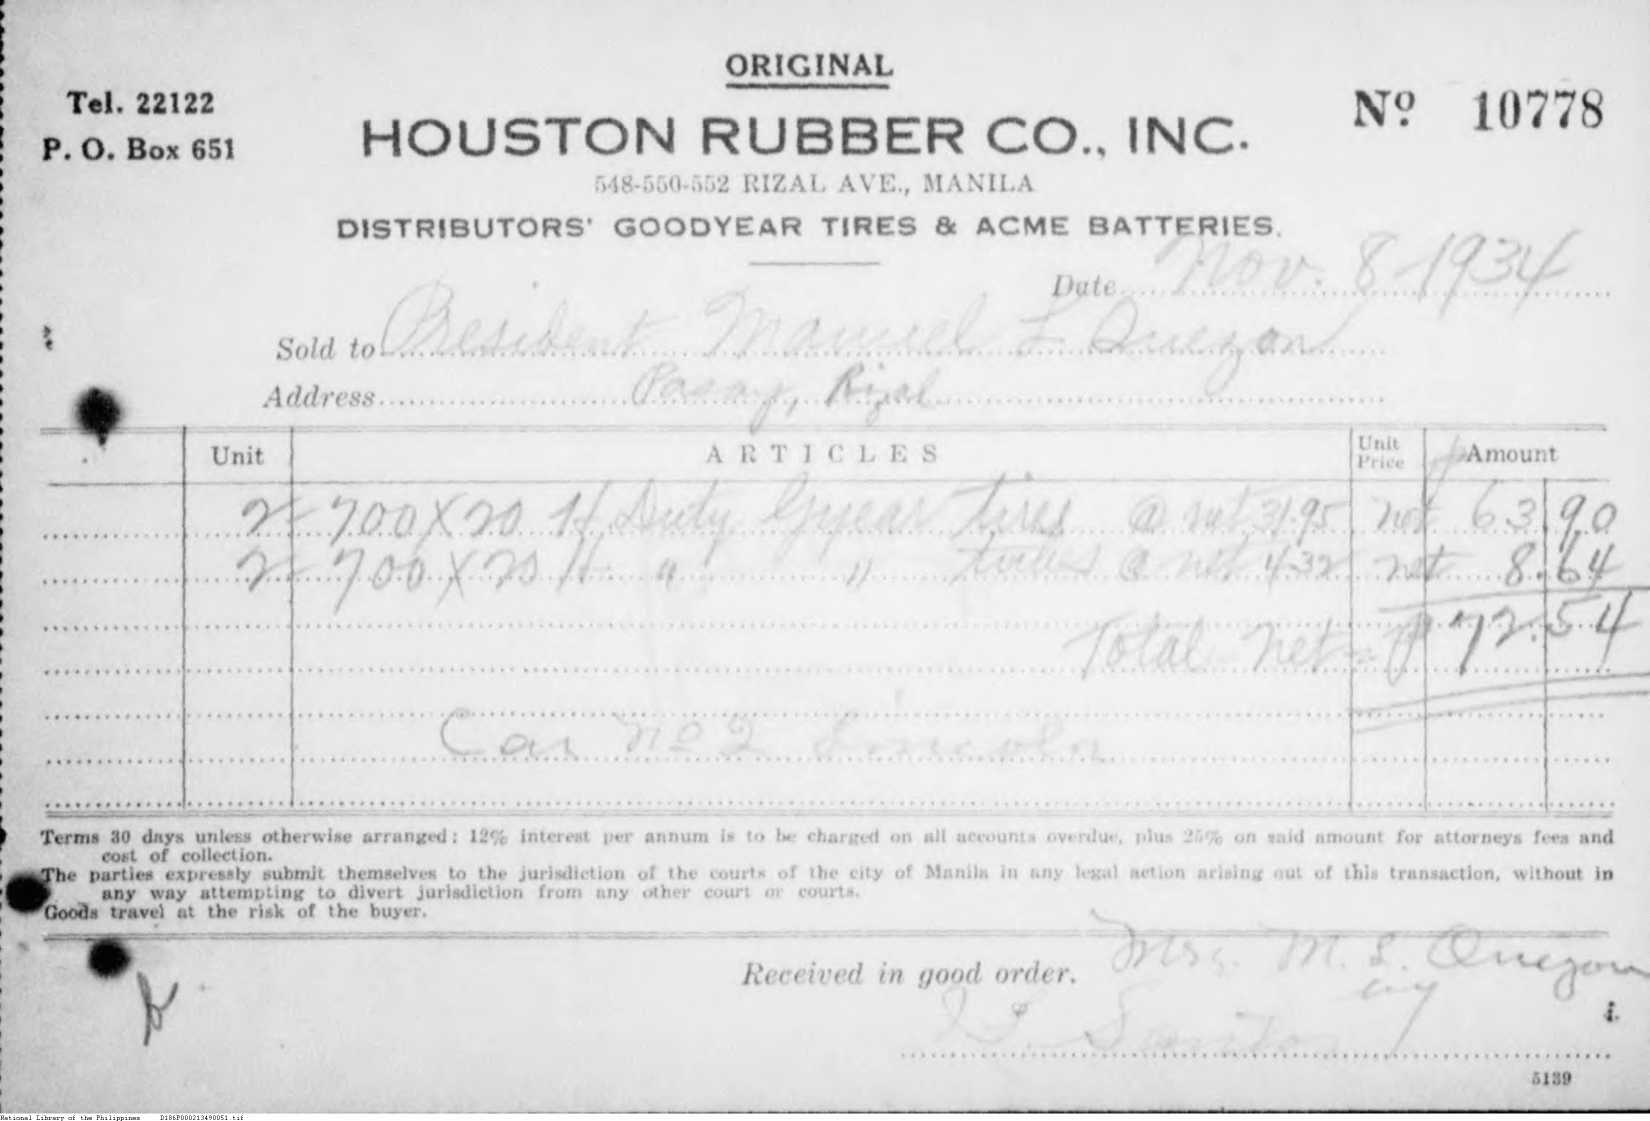 ORIGINAL
Tel. 22122
P. O. Box 651
Nº 10778
HOUSTON RUBBER CO., INC.
548-550-552 RIZAL AVE., MANILA
DISTRIBUTORS' GOODYEAR TIRES & ACME BATTERIES.
Date Nov. 8-1934
Sold to President Manuel L Quezon
Address Pasay, Rizal
Unit ARTICLES Unit Price Amount
2 700 X 20 H Duty Gyear tires @ net 31.95 net 63 90
2 700 X 20 H " " tubes @ net 4.32 net 8.64
Total net = ₱ 72.54
Car No 2 Lincoln
Terms 30 days unless otherwise arranged: 12% interest per annum is to be charged on all accounts overdue, plus 25% on said amount for attorneys fees and
cost of collection.
The parties expressly submit themselves to the jurisdiction of the courts of the city of Manila in any legal action arising out of this transaction, without in
any way attempting to divert jurisdiction from any other court or courts.
Goods travel at the risk of the buyer.
Received in good order. Mrs. M. L. Quezon
by
Santos
5139
National Library of the Philippines D186P000213490051.tif